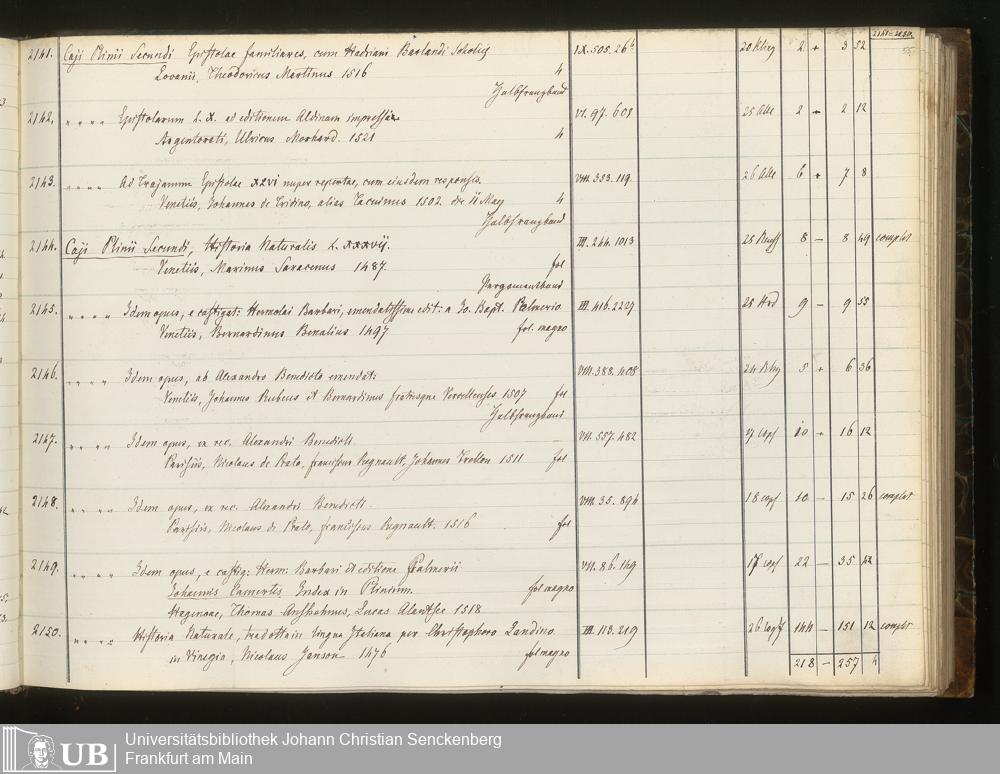 2141-2150.
55.
2141. Caji Plinii Secundi Epistolae familiares, cum Hadriani Barlandi Scholiis IX.505.26b 20 2 + 3 52
Lovanii, Theodoricus Martinus 1516 4
Halbfranzband
2142. " " " " Epistolarum L.X. ad editionem Aldinam impressae VI.97.608 25 Alle 2 - 2 12
Argentorati, Ulricus Morhard. 1521 4
2143. " " " " Ad Trajanum Epistolae XXVI nuper repertae, cum eiusdem responsis. VIII.353.119 26 Alle 6 + 7 8
Venetiis, Johannes de Tridino, alias Tacuinus 1502. die 11 May 4
Halbfranzband
2144. Caji Plinii Secundi, Historia Naturalis L. XXXVII. III.264.1013 25 8 - 8 49 complet
Venetiis, Marinus Saracenus 1487. fol
Pergamentband
2145. " " " " Idem opus, e castigat: Hermolai Barbari, emendatissime edit: a Jo. Bapt. Palmerio III.416.2229 9 - 9 55
Venetiis, Bernardinus Benalius 1497 fol. magno
2146. " " " " Idem opus, ab Alexandro Benedicto emendat: VIII.388.408 24 5 + 6 36
Venetiis, Johannes Rubeus et Bernardinus fratresque Vercellenses 1507 fol
Halbfranzband
2147. " " " " Idem opus, ex rec. Alexandri Benedicti. VII.557.482 10 + 16 12
Parisiis, Nicolaus de Prato, franciscus Regnault, Johannes Frellon 1511 fol
2148. " " " " Idem opus, ex rec. Alexandri Benedicti. VIII.35.894 18 10 - 15 26 complet
Parisiis, Nicolaus de Prato, franciscus Regnault. 1516 fol
2149. " " " " Idem opus, e castig: Herm: Barbari et editione Palmerii VII.86.149 22 - 35 12
Johannis Camertis Index in Plinium. fol magno
Hagenoae, Thomas Anshelmus, Lucas Alantsee 1518
2150. " " " " Historia Naturale, tradotta in lingua Italiana per Christophoro Landino III.113.219 26 144 - 151 12 complet
in Vinegia, Nicolaus Jenson 1476 fol magno
218 - 257 4
UB
Universitätsbibliothek Johann Christian Senckenberg
Frankfurt am Main